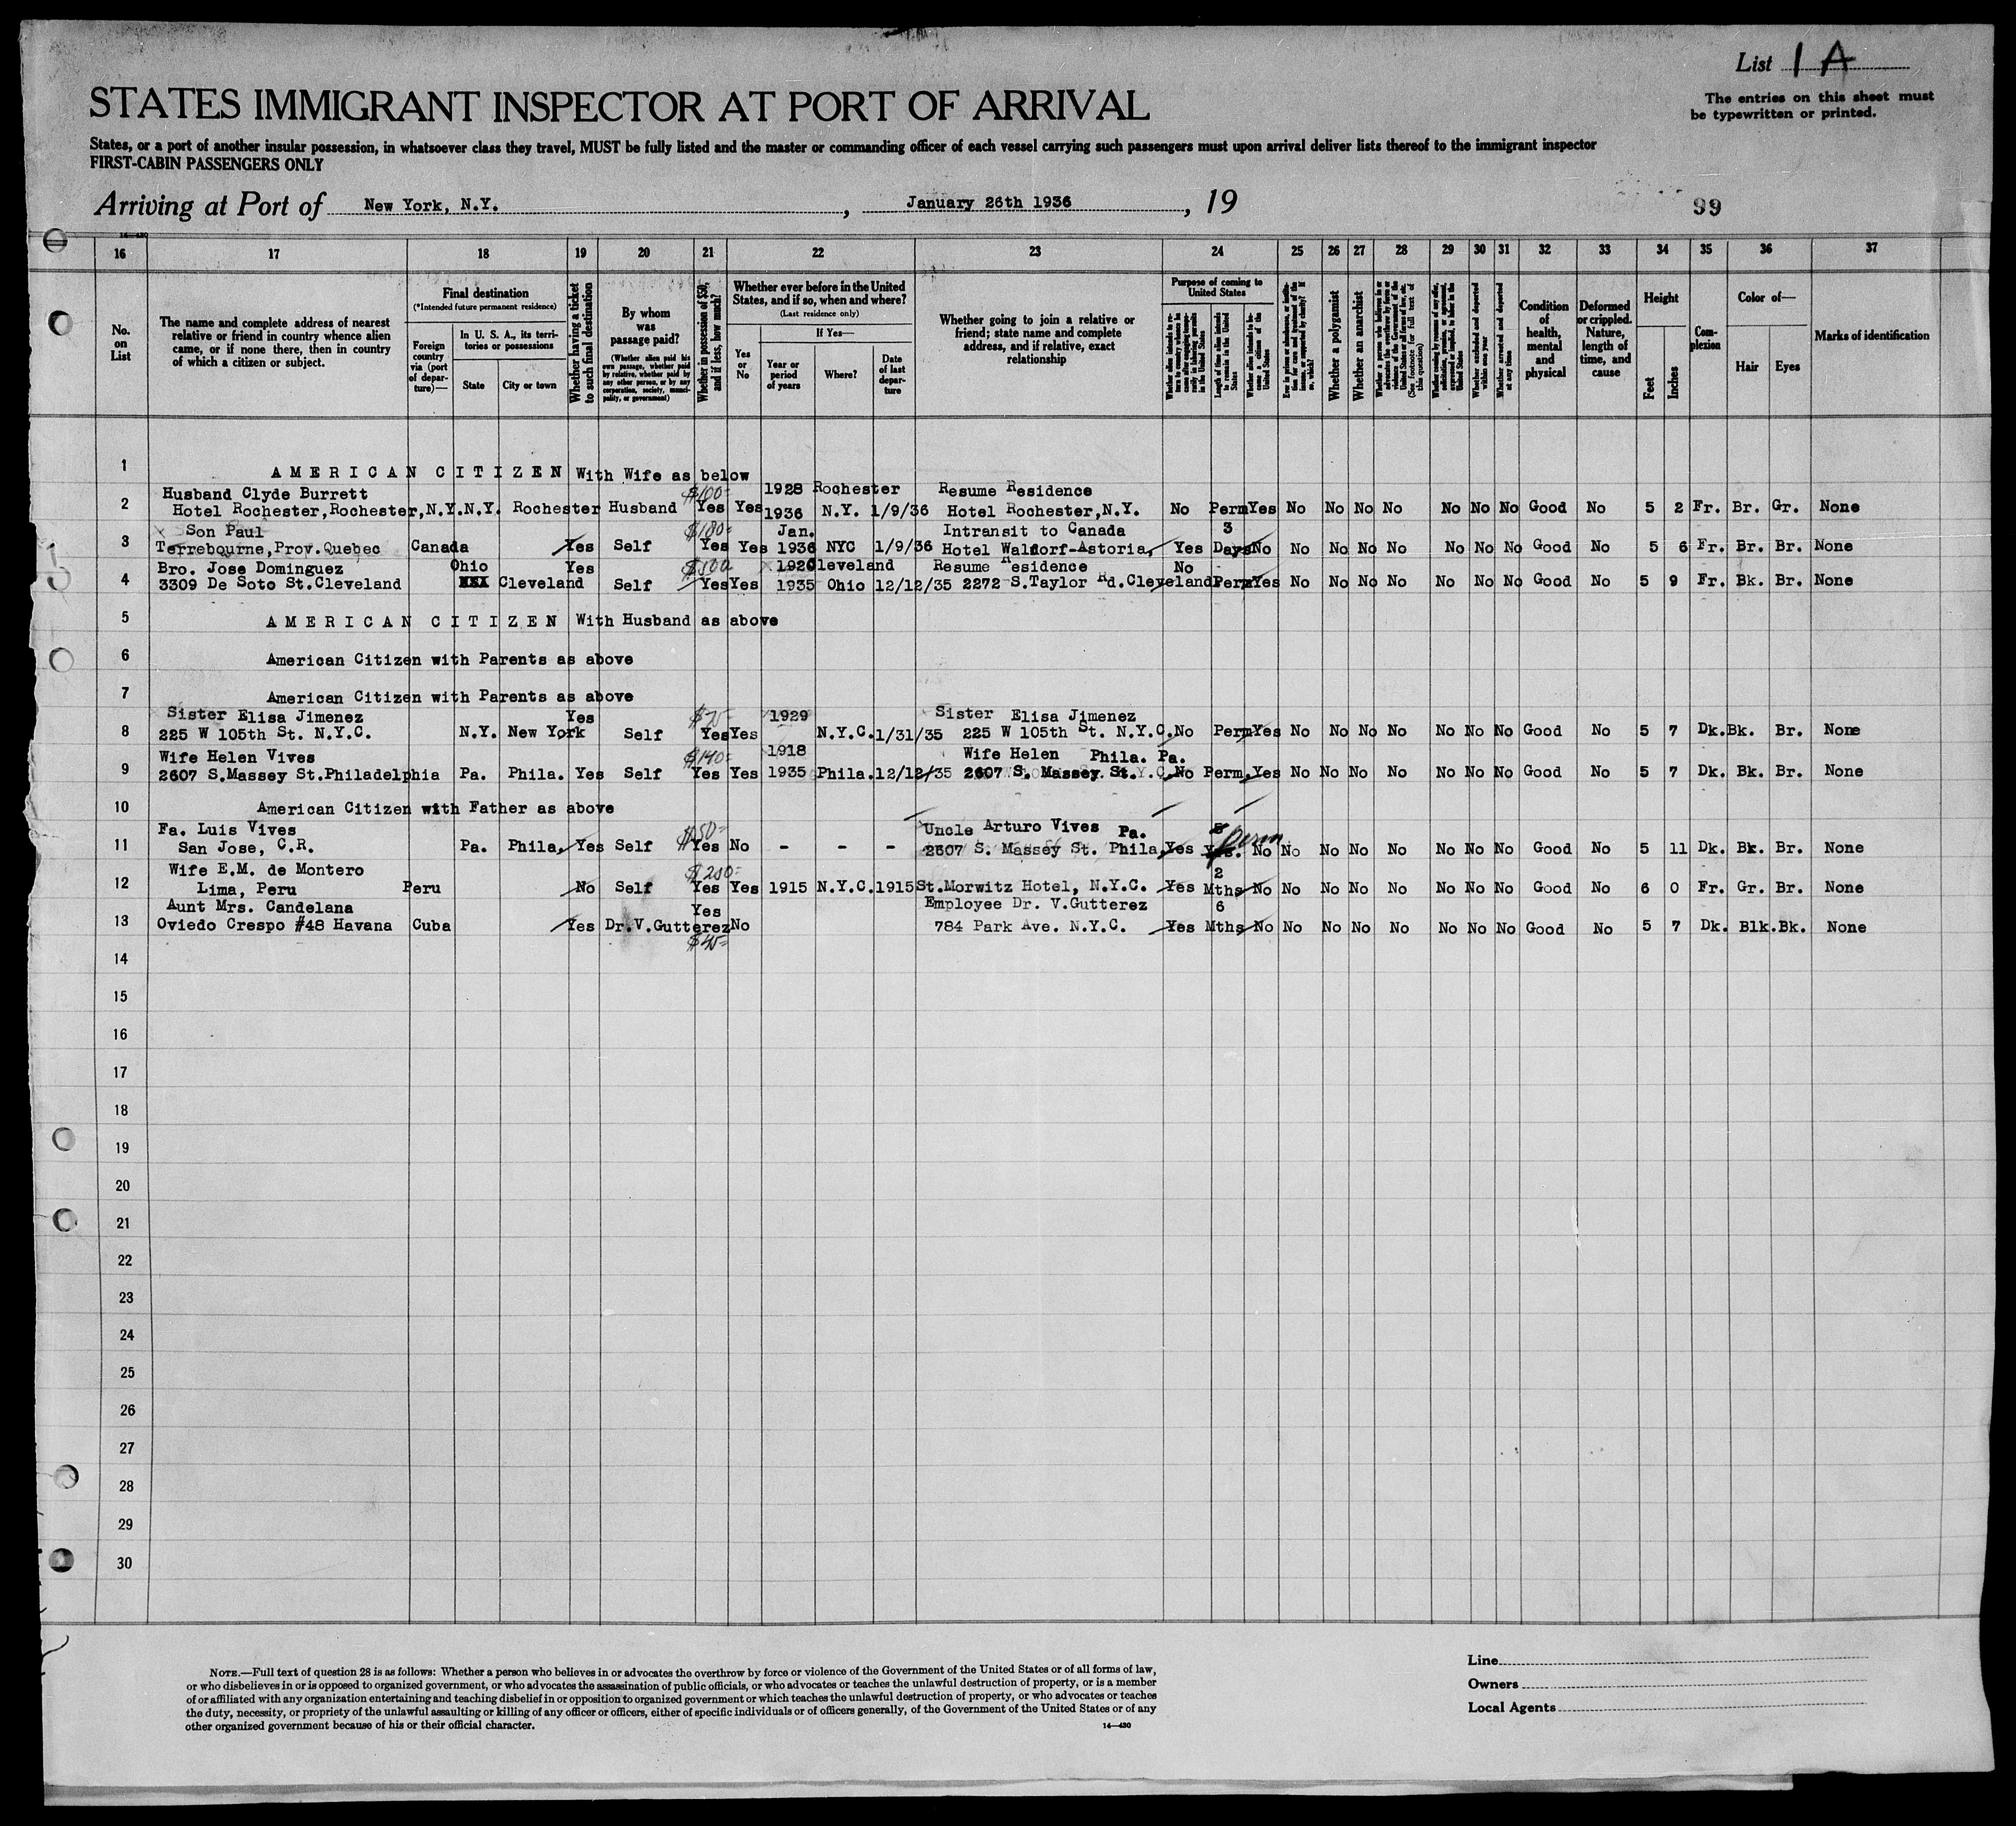 List 1 A
The entries on this sheet must
be typewritten or printed.
STATES IMMIGRANT INSPECTOR AT PORT OF ARRIVAL
States, or a port of another insular possession, in whatsoever class they travel, MUST be fully listed and the master or commanding officer of each vessel carrying such passengers must upon arrival deliver lists thereof to the immigrant inspector
FIRST-CABIN PASSENGERS ONLY
Arriving at Port of New York, N.Y. , January 26th 1936 , 19 99
14—430
16 17 18 19 20 21 22 23 24 25 26 27 28 29 30 31 32 33 34 35 36 37
No. on List
The name and complete address of nearest relative or friend in country whence alien came, or if none there, then in country of which a citizen or subject.
Final destination
(*Intended future permanent residence)
Foreign country via (port of departure)—
In U. S. A., its territories or possessions
State
City or town
Whether having a ticket to such final destination
By whom was passage paid?
(Whether alien paid his own passage, whether paid by relative, whether paid by any other person, or by any corporation, society, municipality, or government)
Whether in possession of $50, and if less, how much?
Whether ever before in the United States, and if so, when and where?
(Last residence only)
Yes or No
If Yes—
Year or period of years
Where?
Date of last departure
Whether going to join a relative or friend; state name and complete address, and if relative, exact relationship
Purpose of coming to United States
Length of time alien intends to remain in the United States
Whether alien intends to become a citizen of the United States
Whether a polygamist
Whether an anarchist
Whether excluded and deported within one year
Whether arrested and deported at any time
Condition of health, mental and physical
Deformed or crippled. Nature, length of time, and cause
Height
Feet
Inches
Complexion
Color of—
Hair
Eyes
Marks of identification
1 AMERICAN CITIZEN With Wife as below
Husband Clyde Burrett $100= 1928 Rochester Resume Residence
2 Hotel Rochester,Rochester,N.Y. N.Y. Rochester Husband Yes Yes 1936 N.Y. 1/9/36 Hotel Rochester,N.Y. No Perm Yes No No No No No No No Good No 5 2 Fr. Br. Gr. None
Son Paul $180= Jan. Intransit to Canada 3
3 Terrebourne,Prov.Quebec Canada Yes Self Yes Yes 1936 NYC 1/9/36 Hotel Waldorf-Astoria, Yes Days No No No No No No No No Good No 5 6 Fr. Br. Br. None
Bro. Jose Dominguez Ohio Yes $500 1920 Cleveland Resume Residence No
4 3309 De Soto St.Cleveland Cleveland Self Yes Yes 1935 Ohio 12/12/35 2272 S.Taylor Rd.Cleveland Perm Yes No No No No No No No Good No 5 9 Fr. Bk. Br. None
5 AMERICAN CITIZEN With Husband as above
6 American Citizen with Parents as above
7 American Citizen with Parents as above
Sister Elisa Jimenez Yes 1929 Sister Elisa Jimenez
8 225 W 105th St. N.Y.C. N.Y. New York Self Yes Yes N.Y.C. 1/31/35 225 W 105th St. N.Y.C. No Perm Yes No No No No No No No Good No 5 7 Dk. Bk. Br. None
Wife Helen Vives $140= 1918 Wife Helen Phila. Pa.
9 2607 S.Massey St.Philadelphia Pa. Phila. Yes Self Yes Yes 1935 Phila. 12/12/35 2607 S. Massey St. No Perm. Yes No No No No No No No Good No 5 7 Dk. Bk. Br. None
10 American Citizen with Father as above
Fa. Luis Vives $50= Uncle Arturo Vives Pa. 5 Perm
11 San Jose, C.R. Pa. Phila. Yes Self Yes No - - - 2607 S. Massey St. Phila Yes Yrs. No No No No No No No No Good No 5 11 Dk. Bk. Br. None
Wife E.M. de Montero $200= 2
12 Lima, Peru Peru No Self Yes Yes 1915 N.Y.C. 1915 St.Morwitz Hotel, N.Y.C. Yes Mths No No No No No No No No Good No 6 0 Fr. Gr. Br. None
Aunt Mrs. Candelana Yes Employee Dr. V.Gutterez 6
13 Oviedo Crespo #48 Havana Cuba Yes Dr.V.Gutterez No 784 Park Ave. N.Y.C. Yes Mths No No No No No No No No Good No 5 7 Dk. Blk. Bk. None
14
15
16
17
18
19
20
21
22
23
24
25
26
27
28
29
30
NOTE.—Full text of question 28 is as follows: Whether a person who believes in or advocates the overthrow by force or violence of the Government of the United States or of all forms of law,
or who disbelieves in or is opposed to organized government, or who advocates the assassination of public officials, or who advocates or teaches the unlawful destruction of property, or is a member
of or affiliated with any organization entertaining and teaching disbelief in or opposition to organized government or which teaches the unlawful destruction of property, or who advocates or teaches
the duty, necessity, or propriety of the unlawful assaulting or killing of any officer or officers, either of specific individuals or of officers generally, of the Government of the United States or of any
other organized government because of his or their official character.
14—430
Line
Owners
Local Agents